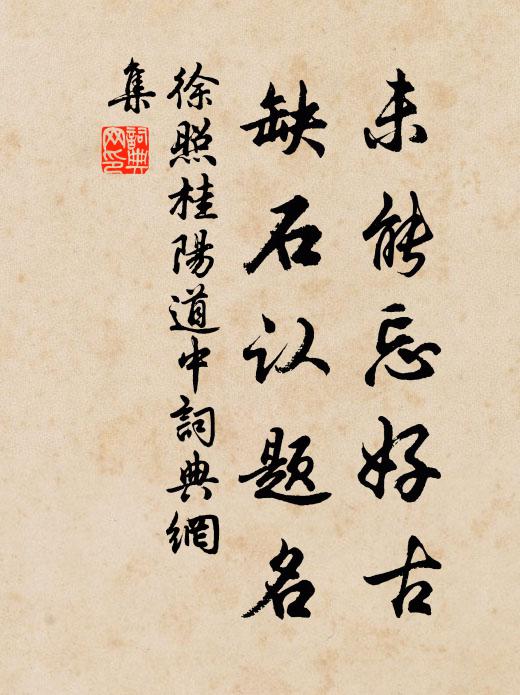 未能忘好古
缺石认题名
徐照桂陽道中詞典網
集
詞典
网印